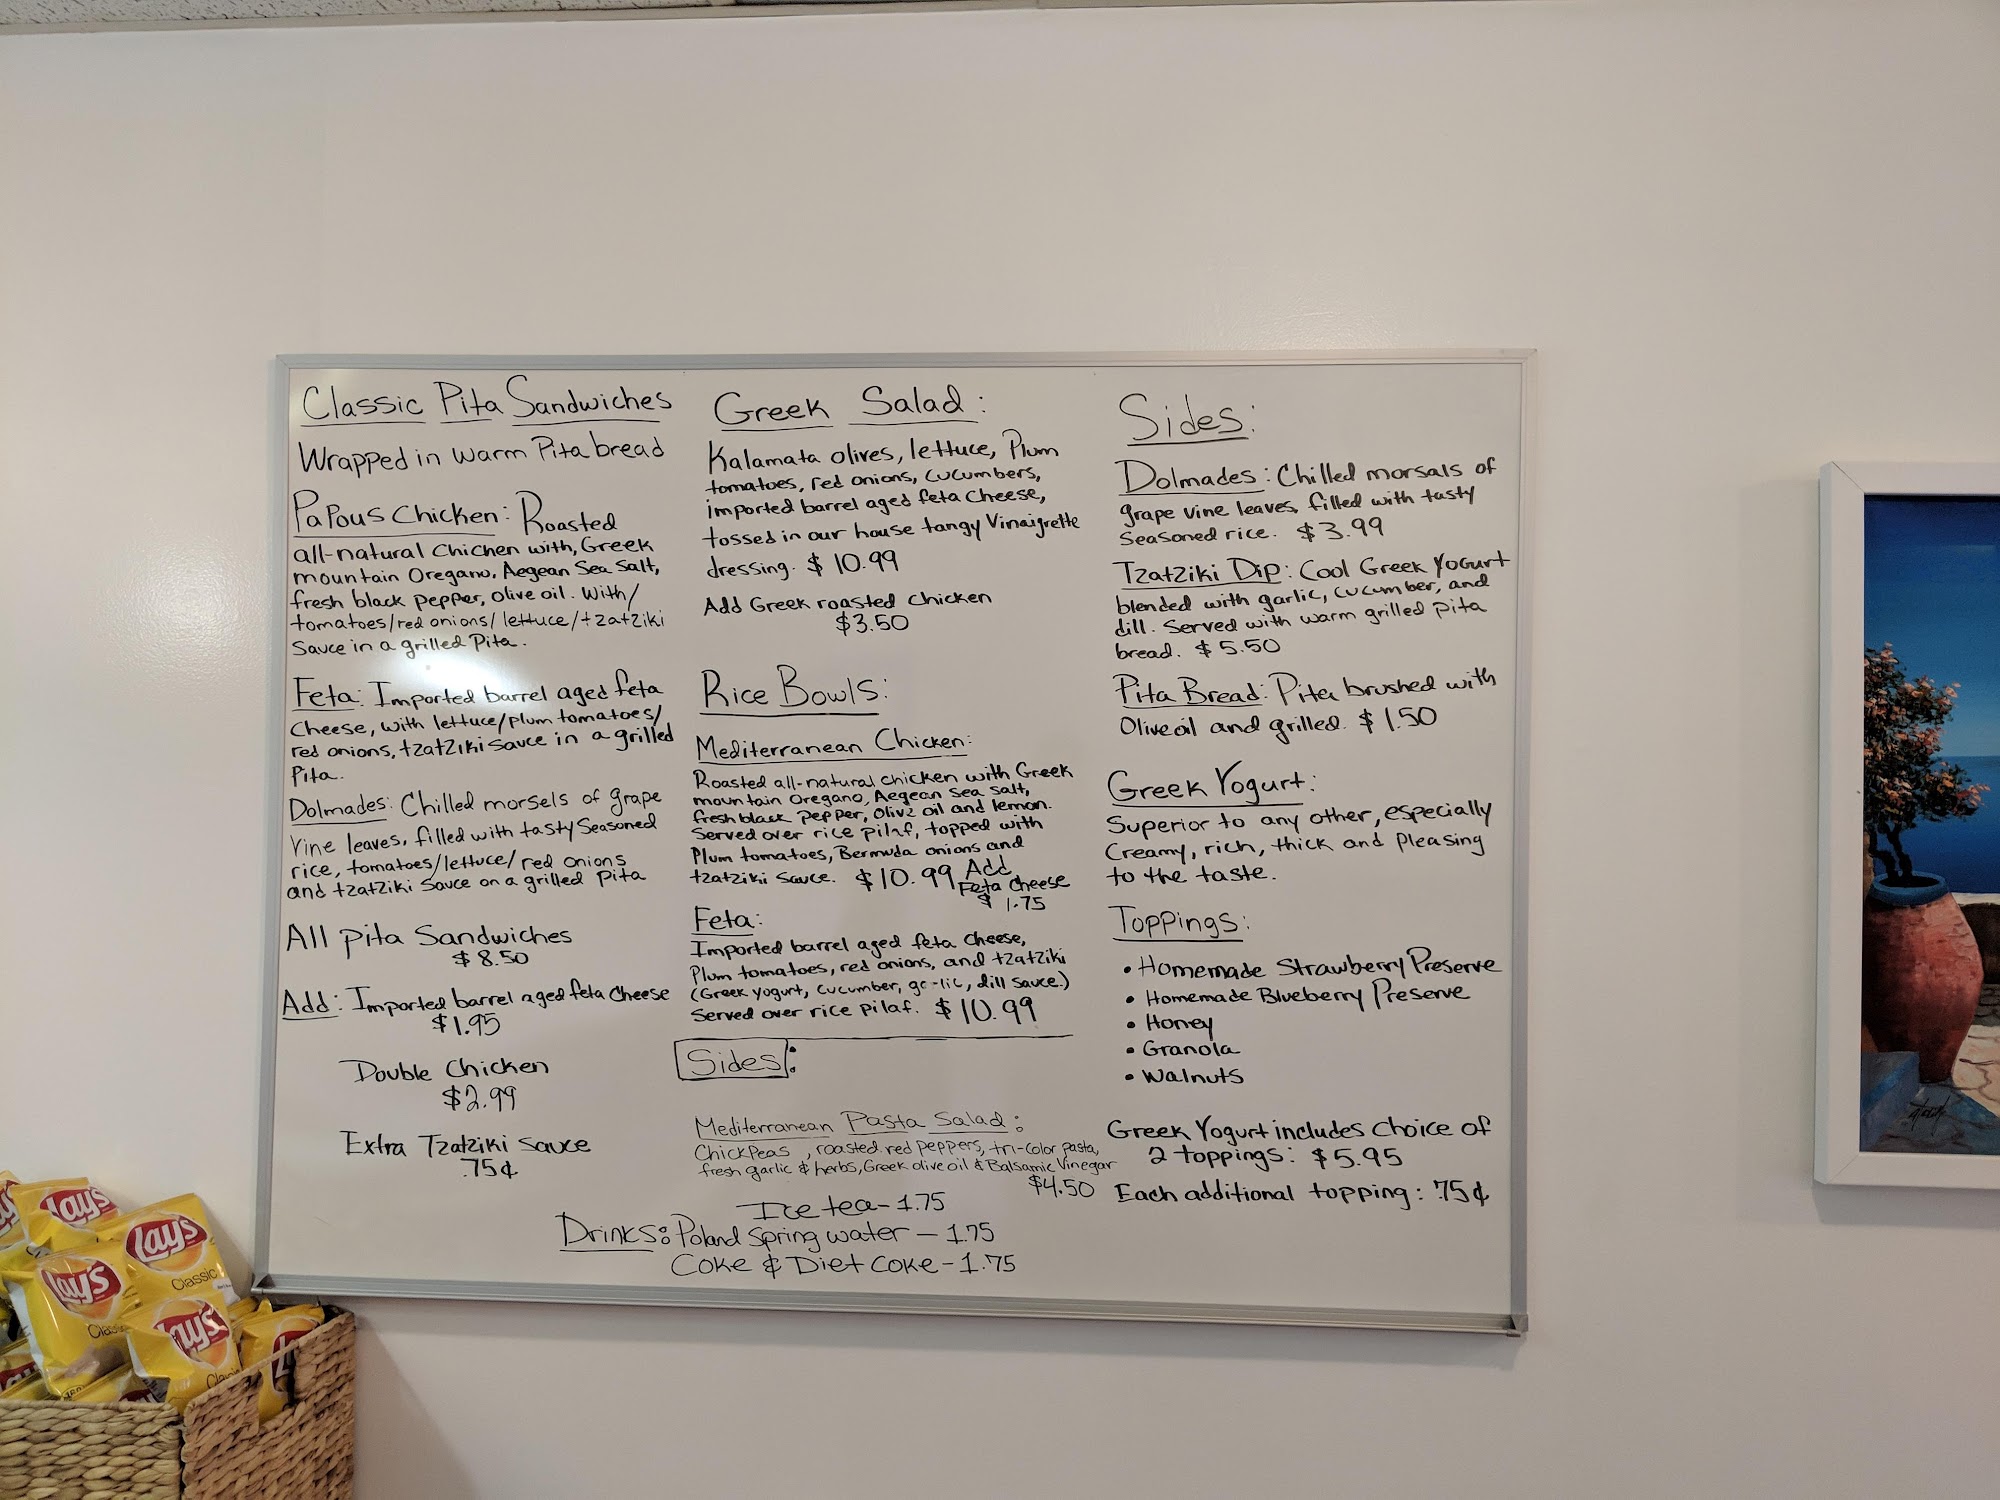 Classic Pita Sandwiches
Wrapped in warm Pita bread
Papous Chicken: Roasted
all-natural Chicken with, Greek
mountain Oregano, Aegean Sea Salt,
fresh black pepper, olive oil. With/
tomatoes/red onions/lettuce/tzatziki
Sauce in a grilled Pita.
Feta: Imported barrel aged feta
Cheese, with lettuce/plum tomatoes/
red onions, tzatziki sauce in a grilled
Pita.
Dolmades: Chilled morsels of grape
Vine leaves, filled with tasty Seasoned
rice, tomatoes/lettuce/red onions
and tzatziki Sauce on a grilled pita
All pita Sandwiches
$8.50
Add: Imported barrel aged feta Cheese
$1.95
Double Chicken
$2.99
Extra Tzatziki sauce
.75¢
Greek Salad:
Kalamata olives, lettuce, Plum
tomatoes, red onions, cucumbers,
imported barrel aged feta Cheese,
tossed in our house tangy Vinaigrette
dressing. $10.99
Add Greek roasted Chicken
$3.50
Rice Bowls:
Mediterranean Chicken:
Roasted all-natural chicken with Greek
mountain Oregano, Aegean Sea salt,
fresh black pepper, Olive oil and lemon.
Served over rice pilaf, topped with
Plum tomatoes, Bermuda onions and
tzatziki sauce. $10.99 Add
Feta Cheese
$1.75
Feta:
Imported barrel aged feta Cheese,
Plum tomatoes, red onions, and tzatziki
(Greek yogurt, cucumber, ga-lic, dill sauce.)
Served over rice pilaf. $10.99
Sides:
Mediterranean Pasta Salad:
Chickpeas, roasted red peppers, tri-color pasta,
fresh garlic & herbs, Greek olive oil & Balsamic Vinegar
$4.50
Ice tea - 1.75
Drinks: Poland Spring water - 1.75
Coke & Diet Coke - 1.75
Sides:
Dolmades: Chilled morsals of
grape vine leaves, filled with tasty
Seasoned rice. $3.99
Tzatziki Dip: Cool Greek Yogurt
blended with garlic, cucumber, and
dill. Served with warm grilled pita
bread. $5.50
Pita Bread: Pita brushed with
Olive oil and grilled. $1.50
Greek Yogurt:
Superior to any other, especially
Creamy, rich, thick and Pleasing
to the taste.
Toppings:
• Homemade Strawberry Preserve
• Homemade Blueberry Preserve
• Honey
• Granola
• Walnuts
Greek Yogurt includes Choice of
2 toppings: $5.95
Each additional topping: .75¢
Lay's
Lay's
Classic
Lay's
Classic
Lay's
Classic